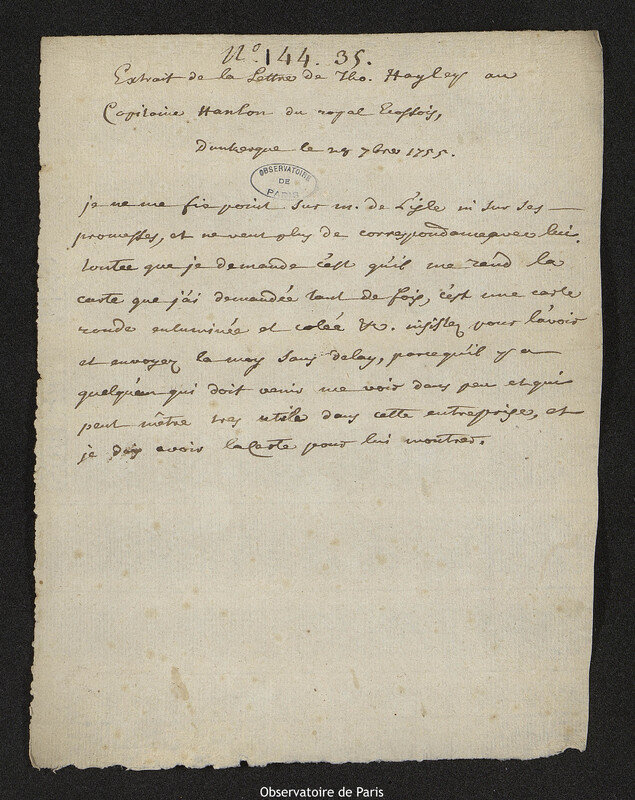 N.º 144. 35.
Extrait de la Lettre de Tho. Hayley au
Capitaine Hanlon du royal Ecossois,
Dunkerque le 28 7bre 1755.
OBSERVATOIRE
DE
PARIS
je ne me fie point sur m. de L'isle ni sur ses
promesses, et ne veut plus de correspondance avec lui.
toutce que je demande c'est qu'il me rend la
carte que j'ai demandée tant de fois, c'est une carte
ronde enluminée et colée &c. insistez pour l'avoir
et envoyez la moy sans delay, parcequ'il y a
quelqu'un qui doit venir me voir dans peu et qui
peut m'être tres utile dans cette entreprise, et
je dois avoir laCarte pour lui montrer.
Observatoire de Paris